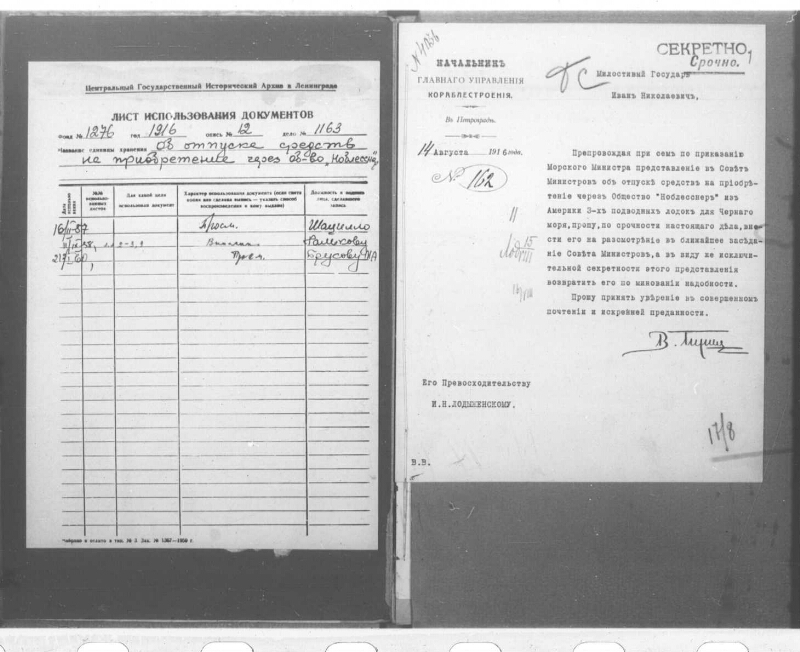 Центральный Государственный Исторический Архив в Ленинграде
ЛИСТ ИСПОЛЬЗОВАНИЯ ДОКУМЕНТОВ
Фонд № 1276 год 1916 опись № 12 дело № 1163
Название единицы хранения Об отпуске средств
на приобретение через Об-во „Ноблесснер"
Дата использования
№№ использованных листов
Для какой цели используются документы
Характер использования документа (если снята копия или сделана выпись — указать способ воспроизведения и кому выдано)
Должность и фамилия лица, сделавшего запись
16/II-57 Просм. Шацилло
58, 2-3, 9 Выписки
21/I 60, Просм. Брусову
№ 3 Зак. № 1367—1956 г.
№ 4036
НАЧАЛЬНИКЪ
ГЛАВНАГО УПРАВЛЕНІЯ
КОРАБЛЕСТРОЕНІЯ.
Въ Петроградѣ.
14 Августа 1916 года.
№ 162
СЕКРЕТНО.
Срочно.
Милостивый Государь
Иванъ Николаевичъ,
Препровождая при семъ по приказанію
Морского Министра представленіе въ Совѣтъ
Министровъ объ отпускѣ средствъ на пріобрѣ-
теніе черезъ Общество "Ноблесснеръ" изъ
Америки 3-хъ подводныхъ лодокъ для Чернаго
моря, прошу, по срочности настоящаго дѣла, вне-
сти его на разсмотрѣніе въ ближайшее засѣда-
ніе Совѣта Министровъ, а въ виду же исключи-
тельной секретности этого представленія
возвратить его по минованіи надобности.
Прошу принять увѣреніе въ совершенномъ
почтеніи и искренней преданности.
Его Превосходительству
И.Н.ЛОДЫЖЕНСКОМУ.
17/8
В.В.